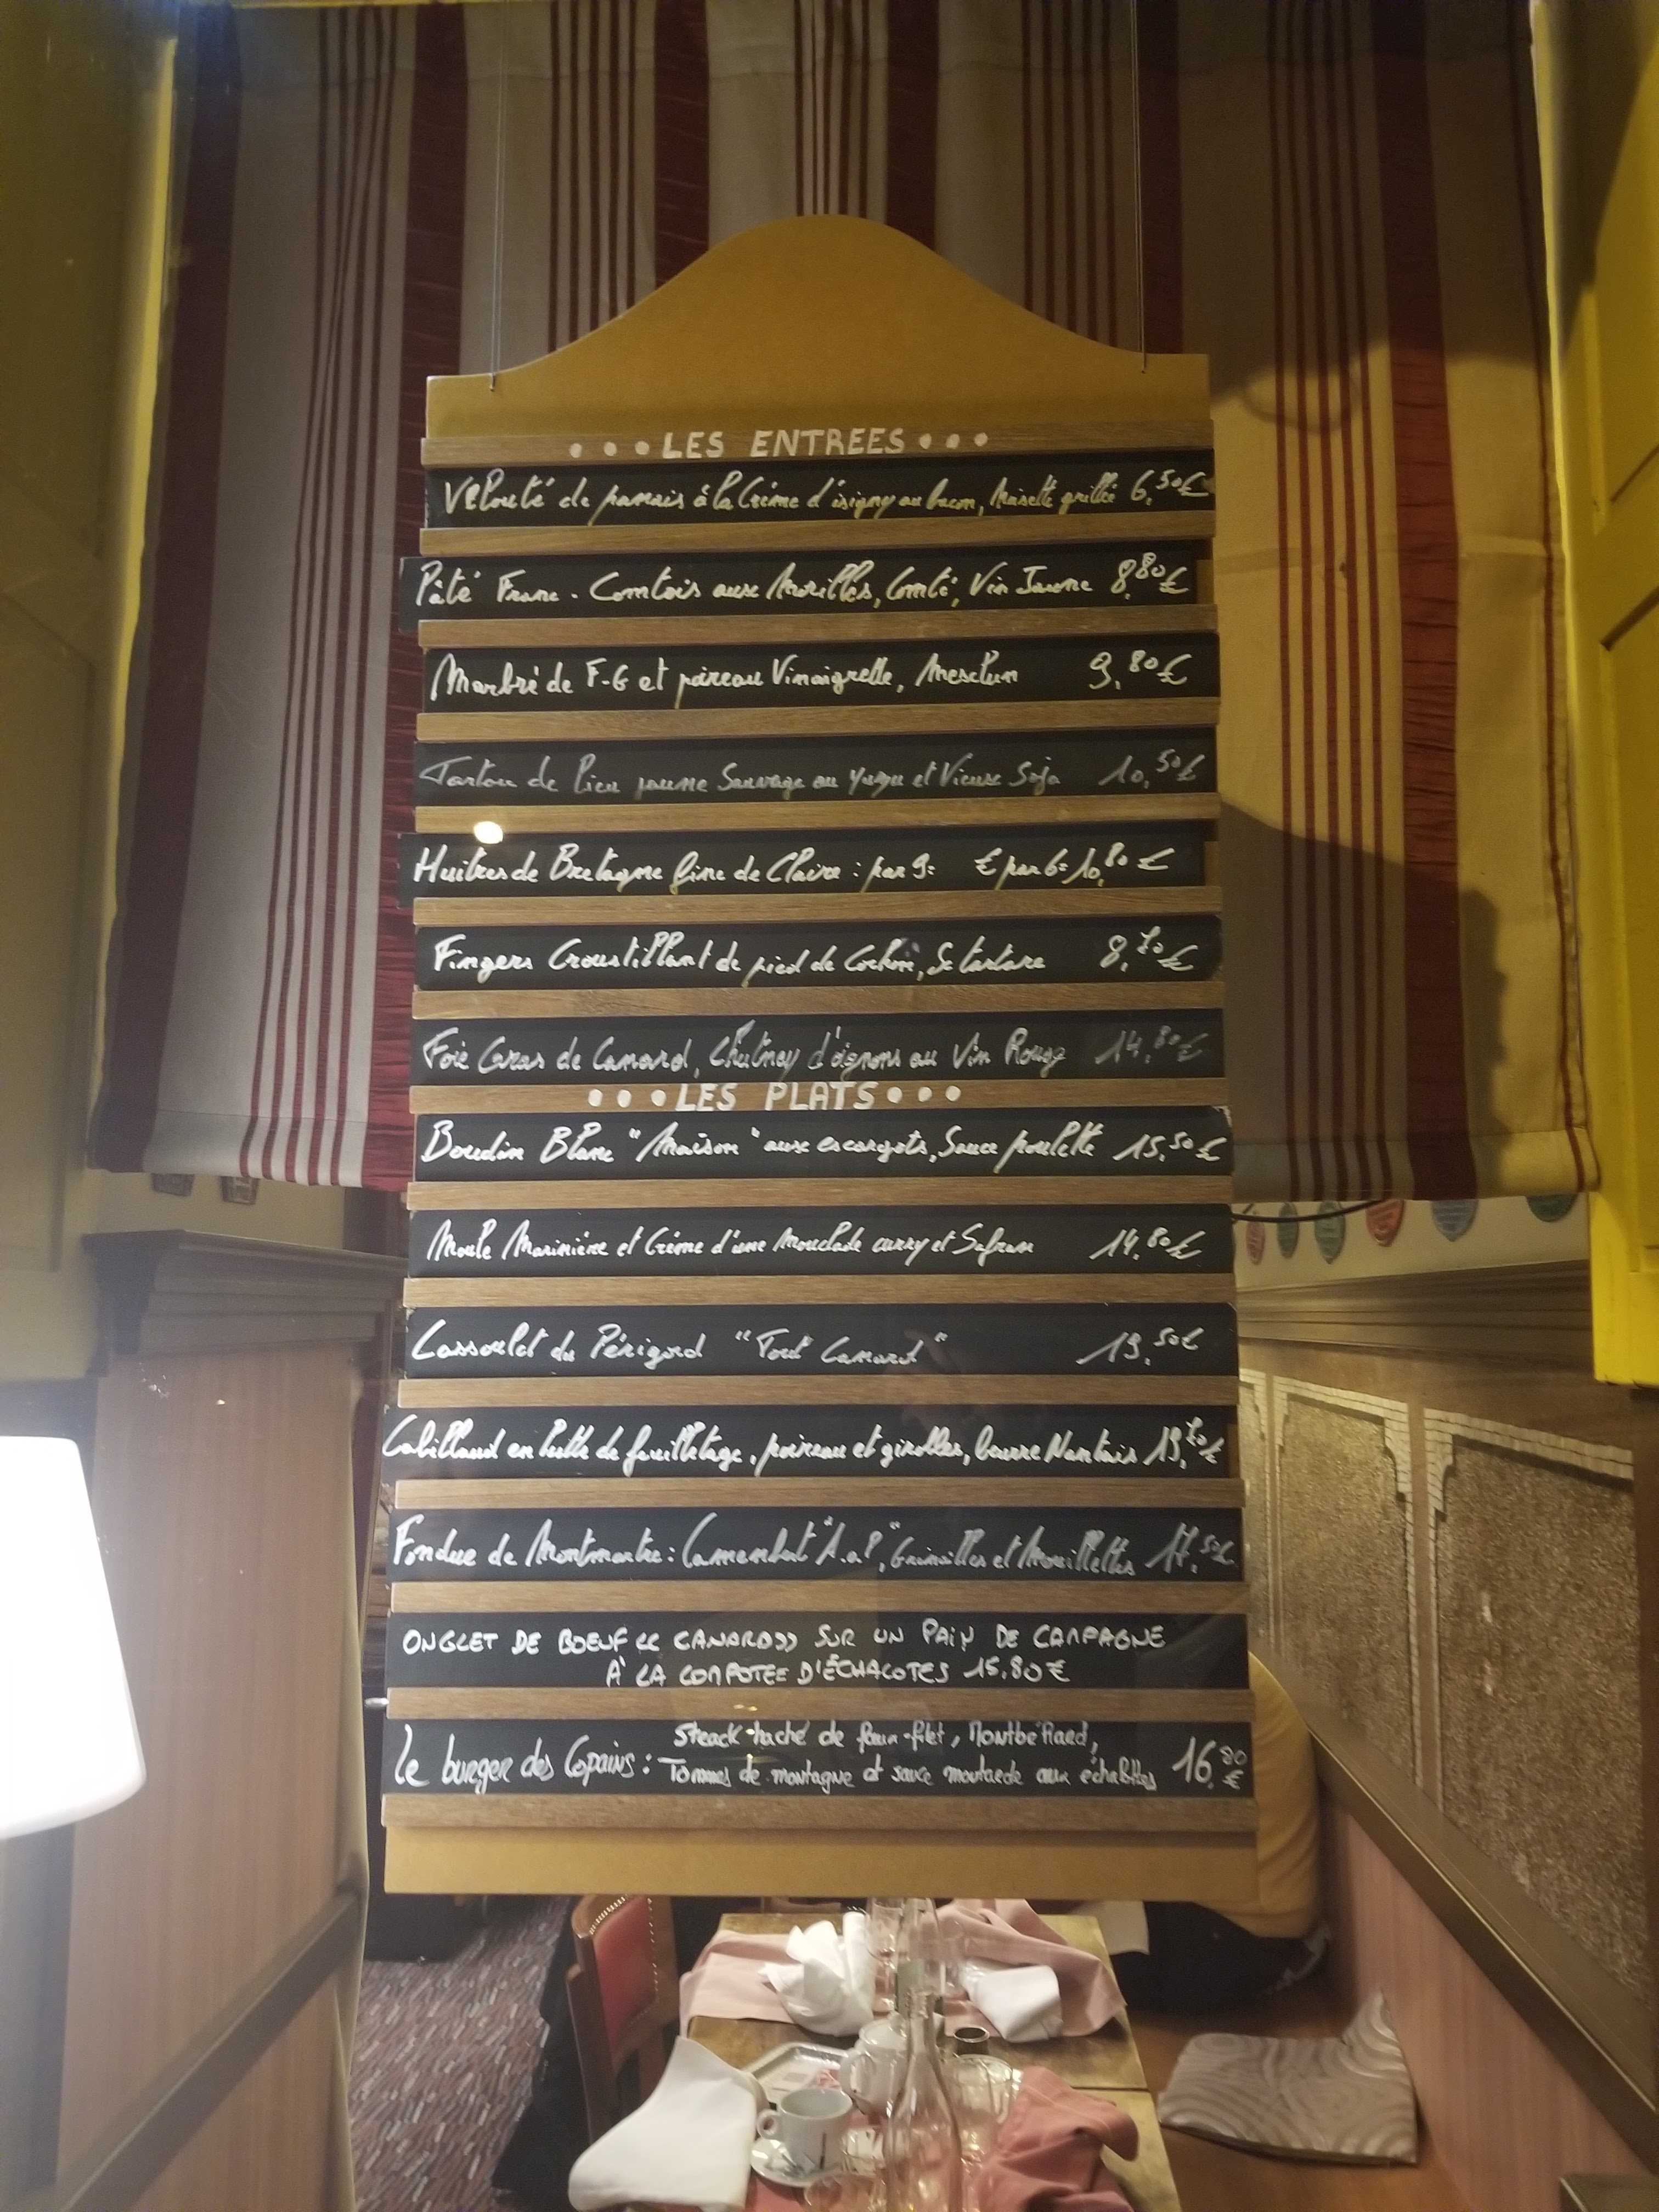 • • • LES ENTREES • • •
Velouté de panais à la Crème d'isigny au bacon, Noisette grillée 6,50€
Pâté Franc-Comtois aux Morilles, Comté, Vin Jaune 8,80€
Marbré de F-G et poireau Vinaigrette, Mesclun 9,80€
Tartare de Lieu jaune Sauvage au yuzu et Vieux Soja 10,50€
Huitres de Bretagne fine de Claire : par 9= € par 6= 10,80 €
Fingers Croustillant de pied de Cochon, Sc tartare 8,70€
Foie Gras de Canard, Chutney d'oignons au Vin Rouge 14,80€
• • • LES PLATS • • •
Boudin Blanc "Maison" aux escargots, Sauce poulette 15,50€
Moule Marinière et Crème d'une Mouclade curry et Safran 14,80€
Cassoulet du Périgord "Tout Canard" 19,50€
Cabillaud en habit de feuilletage, poireau et girolles, beurre Nantais 19,70€
Fondue de Montmartre : Camembert "A.O.P", Grenailles et Mouillettes 17,50€
ONGLET DE BOEUF << CANARD >> SUR UN PAIN DE CAMPAGNE
À LA COMPOTEE D'ÉCHALOTES 15.80€
Le burger des Copains : Steack haché de faux-filet, Montbéliard,
Tommes de montagne et sauce moutarde aux échalottes 16,80€